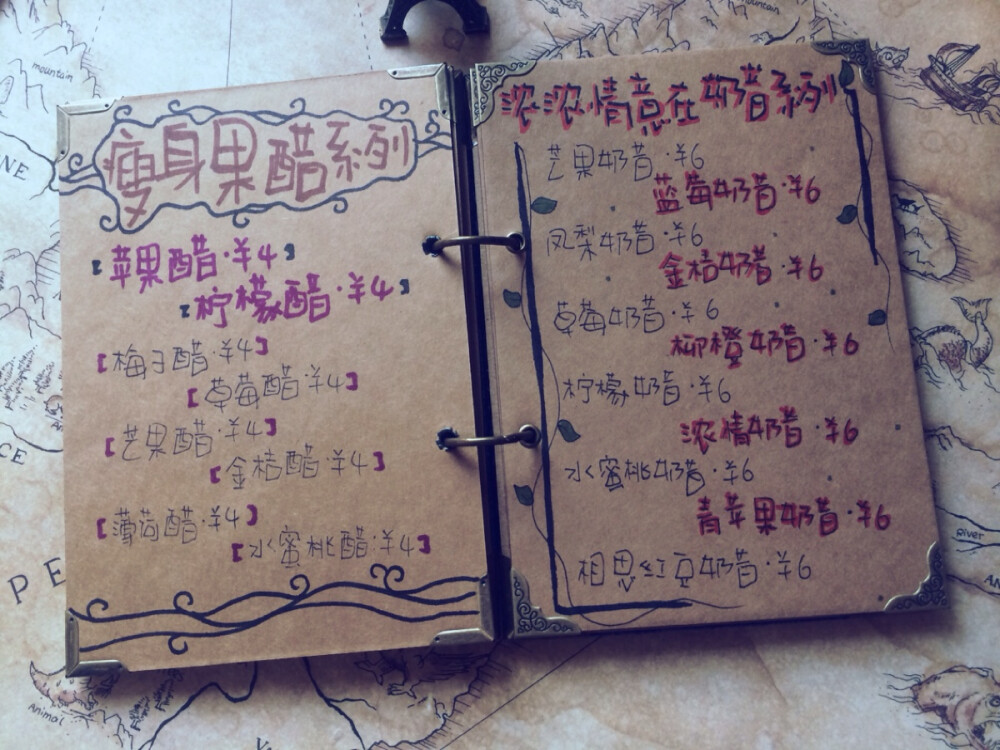 瘦身果醋系列
【苹果醋·¥4】
【柠檬醋·¥4】
【梅子醋·¥4】
【草莓醋·¥4】
【芒果醋·¥4】
【金桔醋·¥4】
【薄荷醋·¥4】
【水蜜桃醋·¥4】
浓浓情意在奶昔系列
芒果奶昔·¥6
蓝莓奶昔·¥6
凤梨奶昔·¥6
金桔奶昔·¥6
草莓奶昔·¥6
柳橙奶昔·¥6
柠檬奶昔·¥6
浓情奶昔·¥6
水蜜桃奶昔·¥6
青苹果奶昔·¥6
相思红豆奶昔·¥6
mountain
mountain
NE
CE
PE
Animal
River